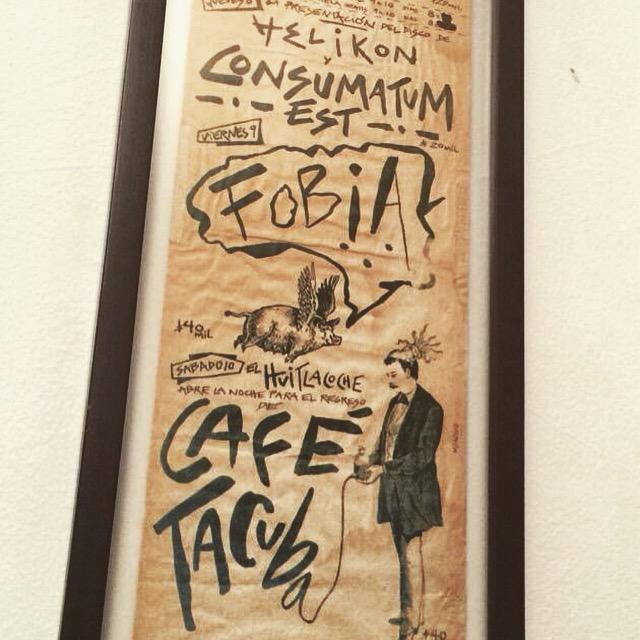 LA PRESENTACIÓN DEL DISCO DE
HELIKON
Y
CONSUMATUM
EST
VIERNES 9
$20 MIL
FOBIA
$40
MIL
SABADO 10 EL HUITLACOCHE
ABRE LA NOCHE PARA EL REGRESO
DE
CAFÉ
TACUBA
$40